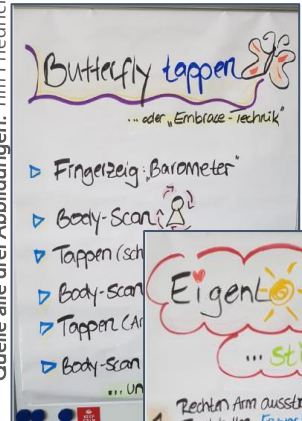 Quelle alle drei Abbildungen:
Butterfly tappen
... oder „Embrace-Technik"
Fingerzeig „Barometer"
Body-Scan
Tappen (sch
Body-Scan
Tappen (Ar
Body-Scan
... un
Eigent
... sti
Rechten Arm ausstr